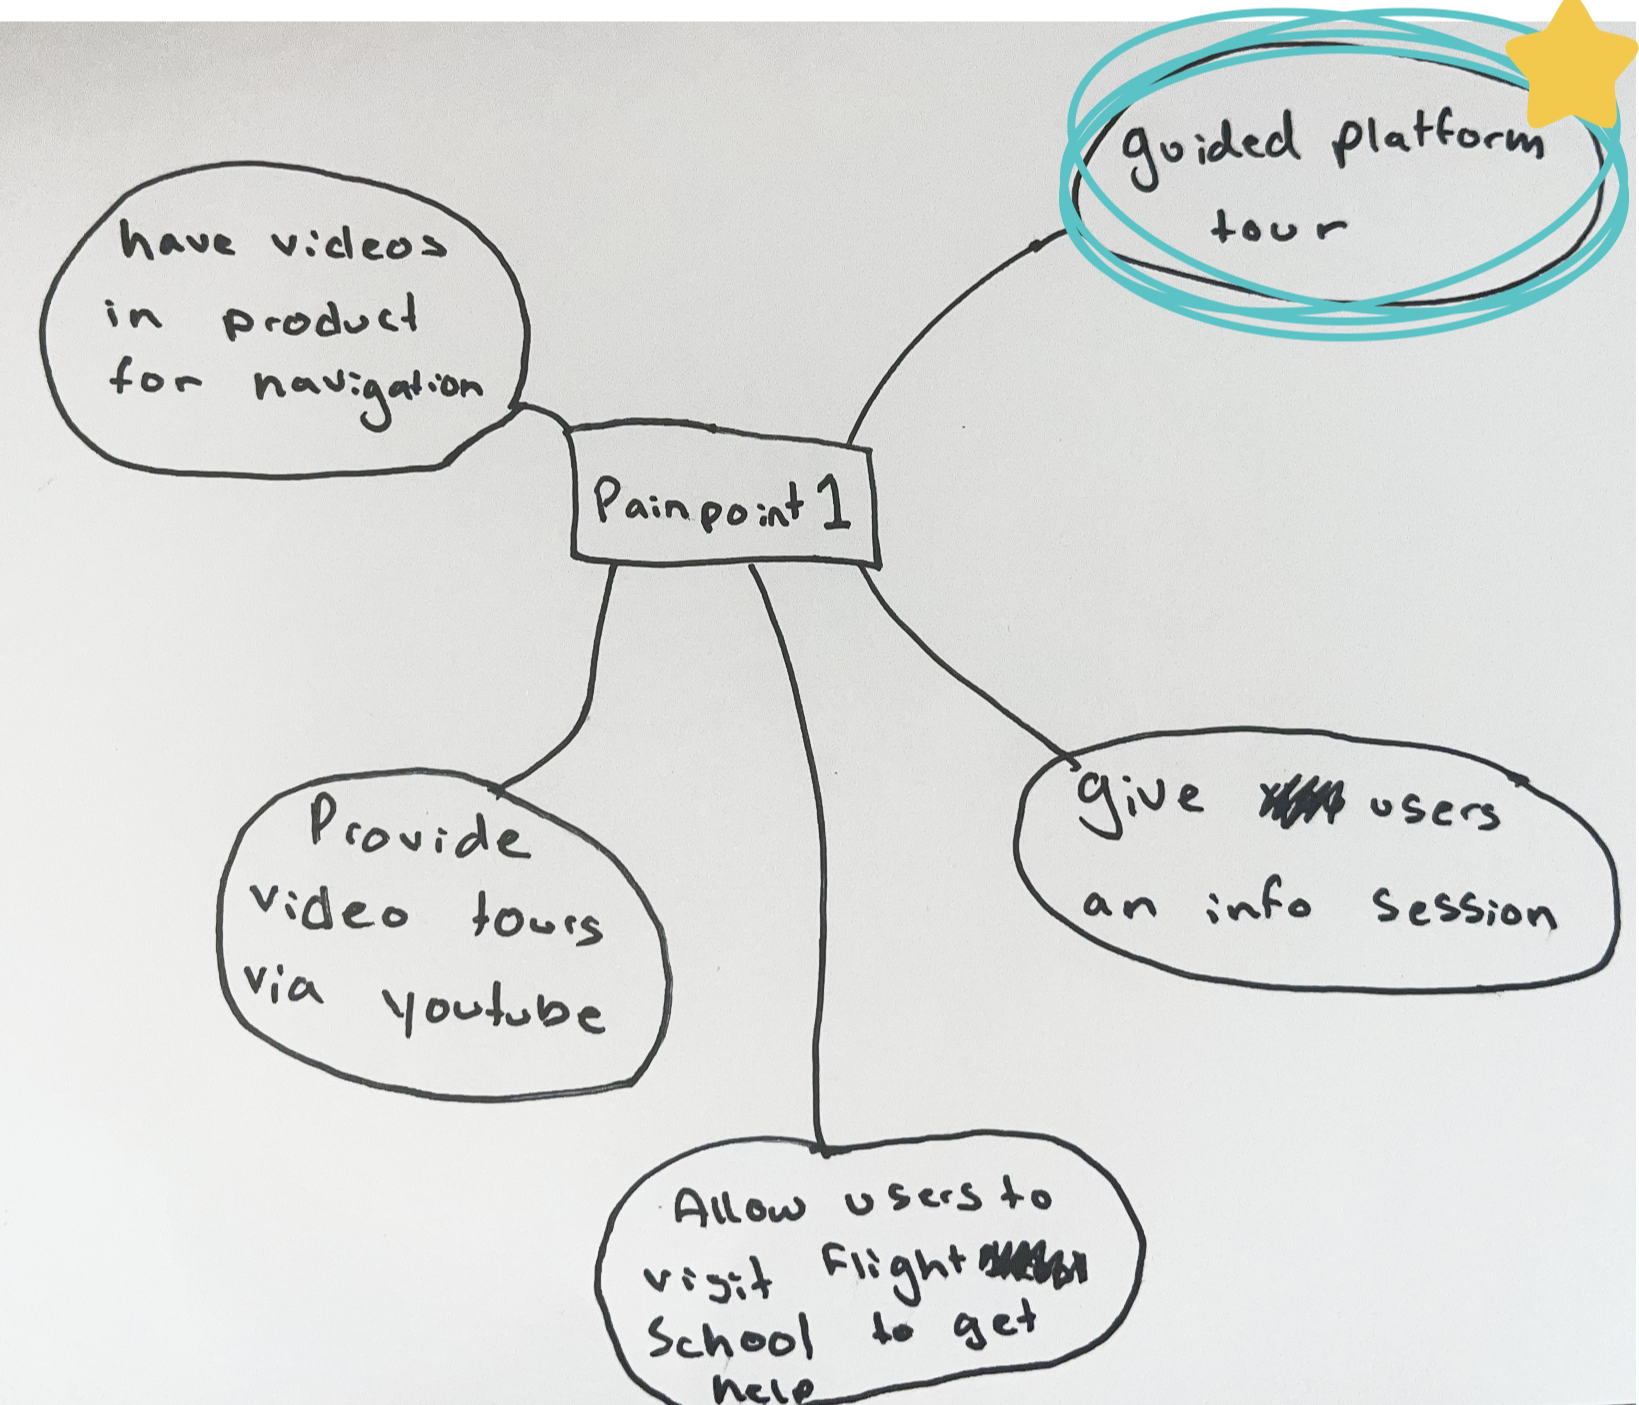 guided platform
tour
have videos
in product
for navigation
Painpoint 1
Provide
video tours
via youtube
give users
an info session
Allow users to
visit Flight
School to get
help